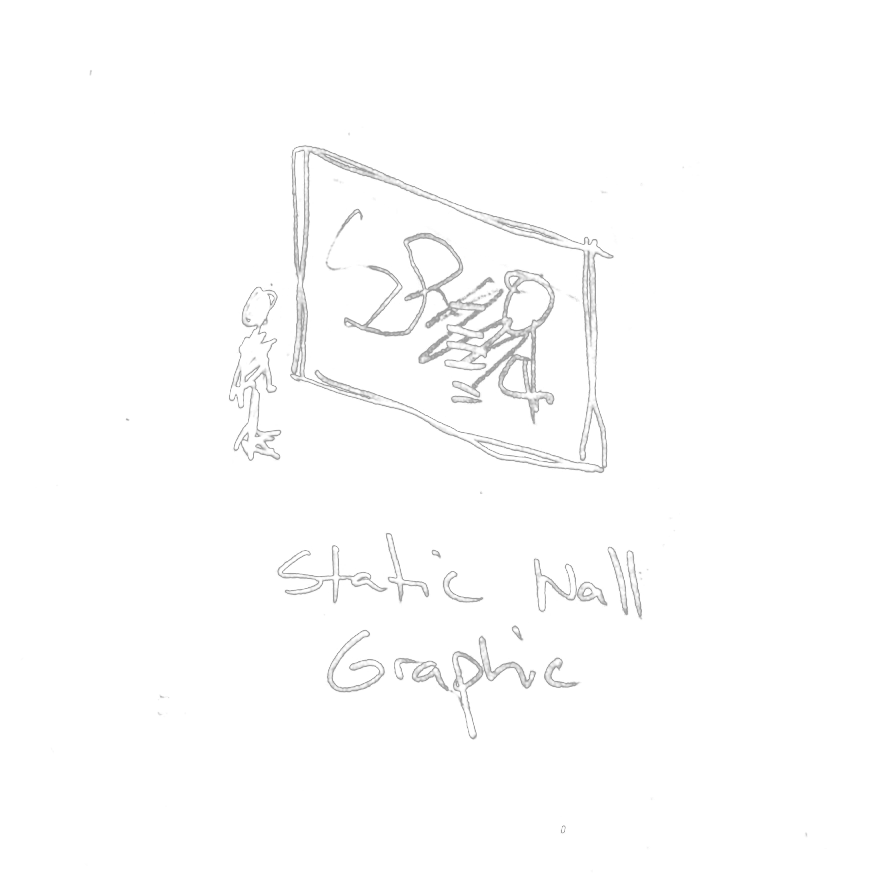 Static Wall
Graphic